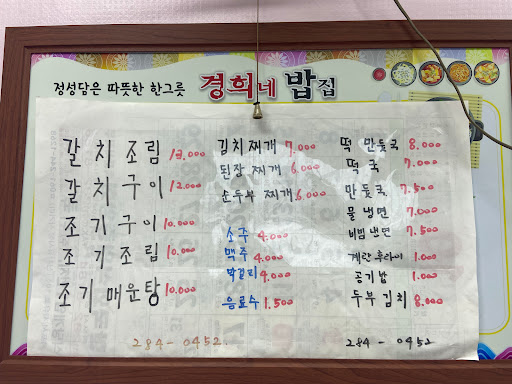 정성담은 따뜻한 한그릇 경희네 밥집
갈치조림 13.000
갈치구이 12.000
조기구이 10.000
조기조림 10.000
조기매운탕 10.000
김치찌개 7.000
된장찌개 6.000
순두부찌개 6.000
소주 4.000
맥주 4.000
막걸리 4.000
음료수 1.500
떡만둣국 8.000
떡국 7.000
만둣국 7.500
물냉면 7.000
비빔냉면 7.500
계란후라이 1.000
공기밥 1.000
두부김치 8.000
284-0452
284-0452